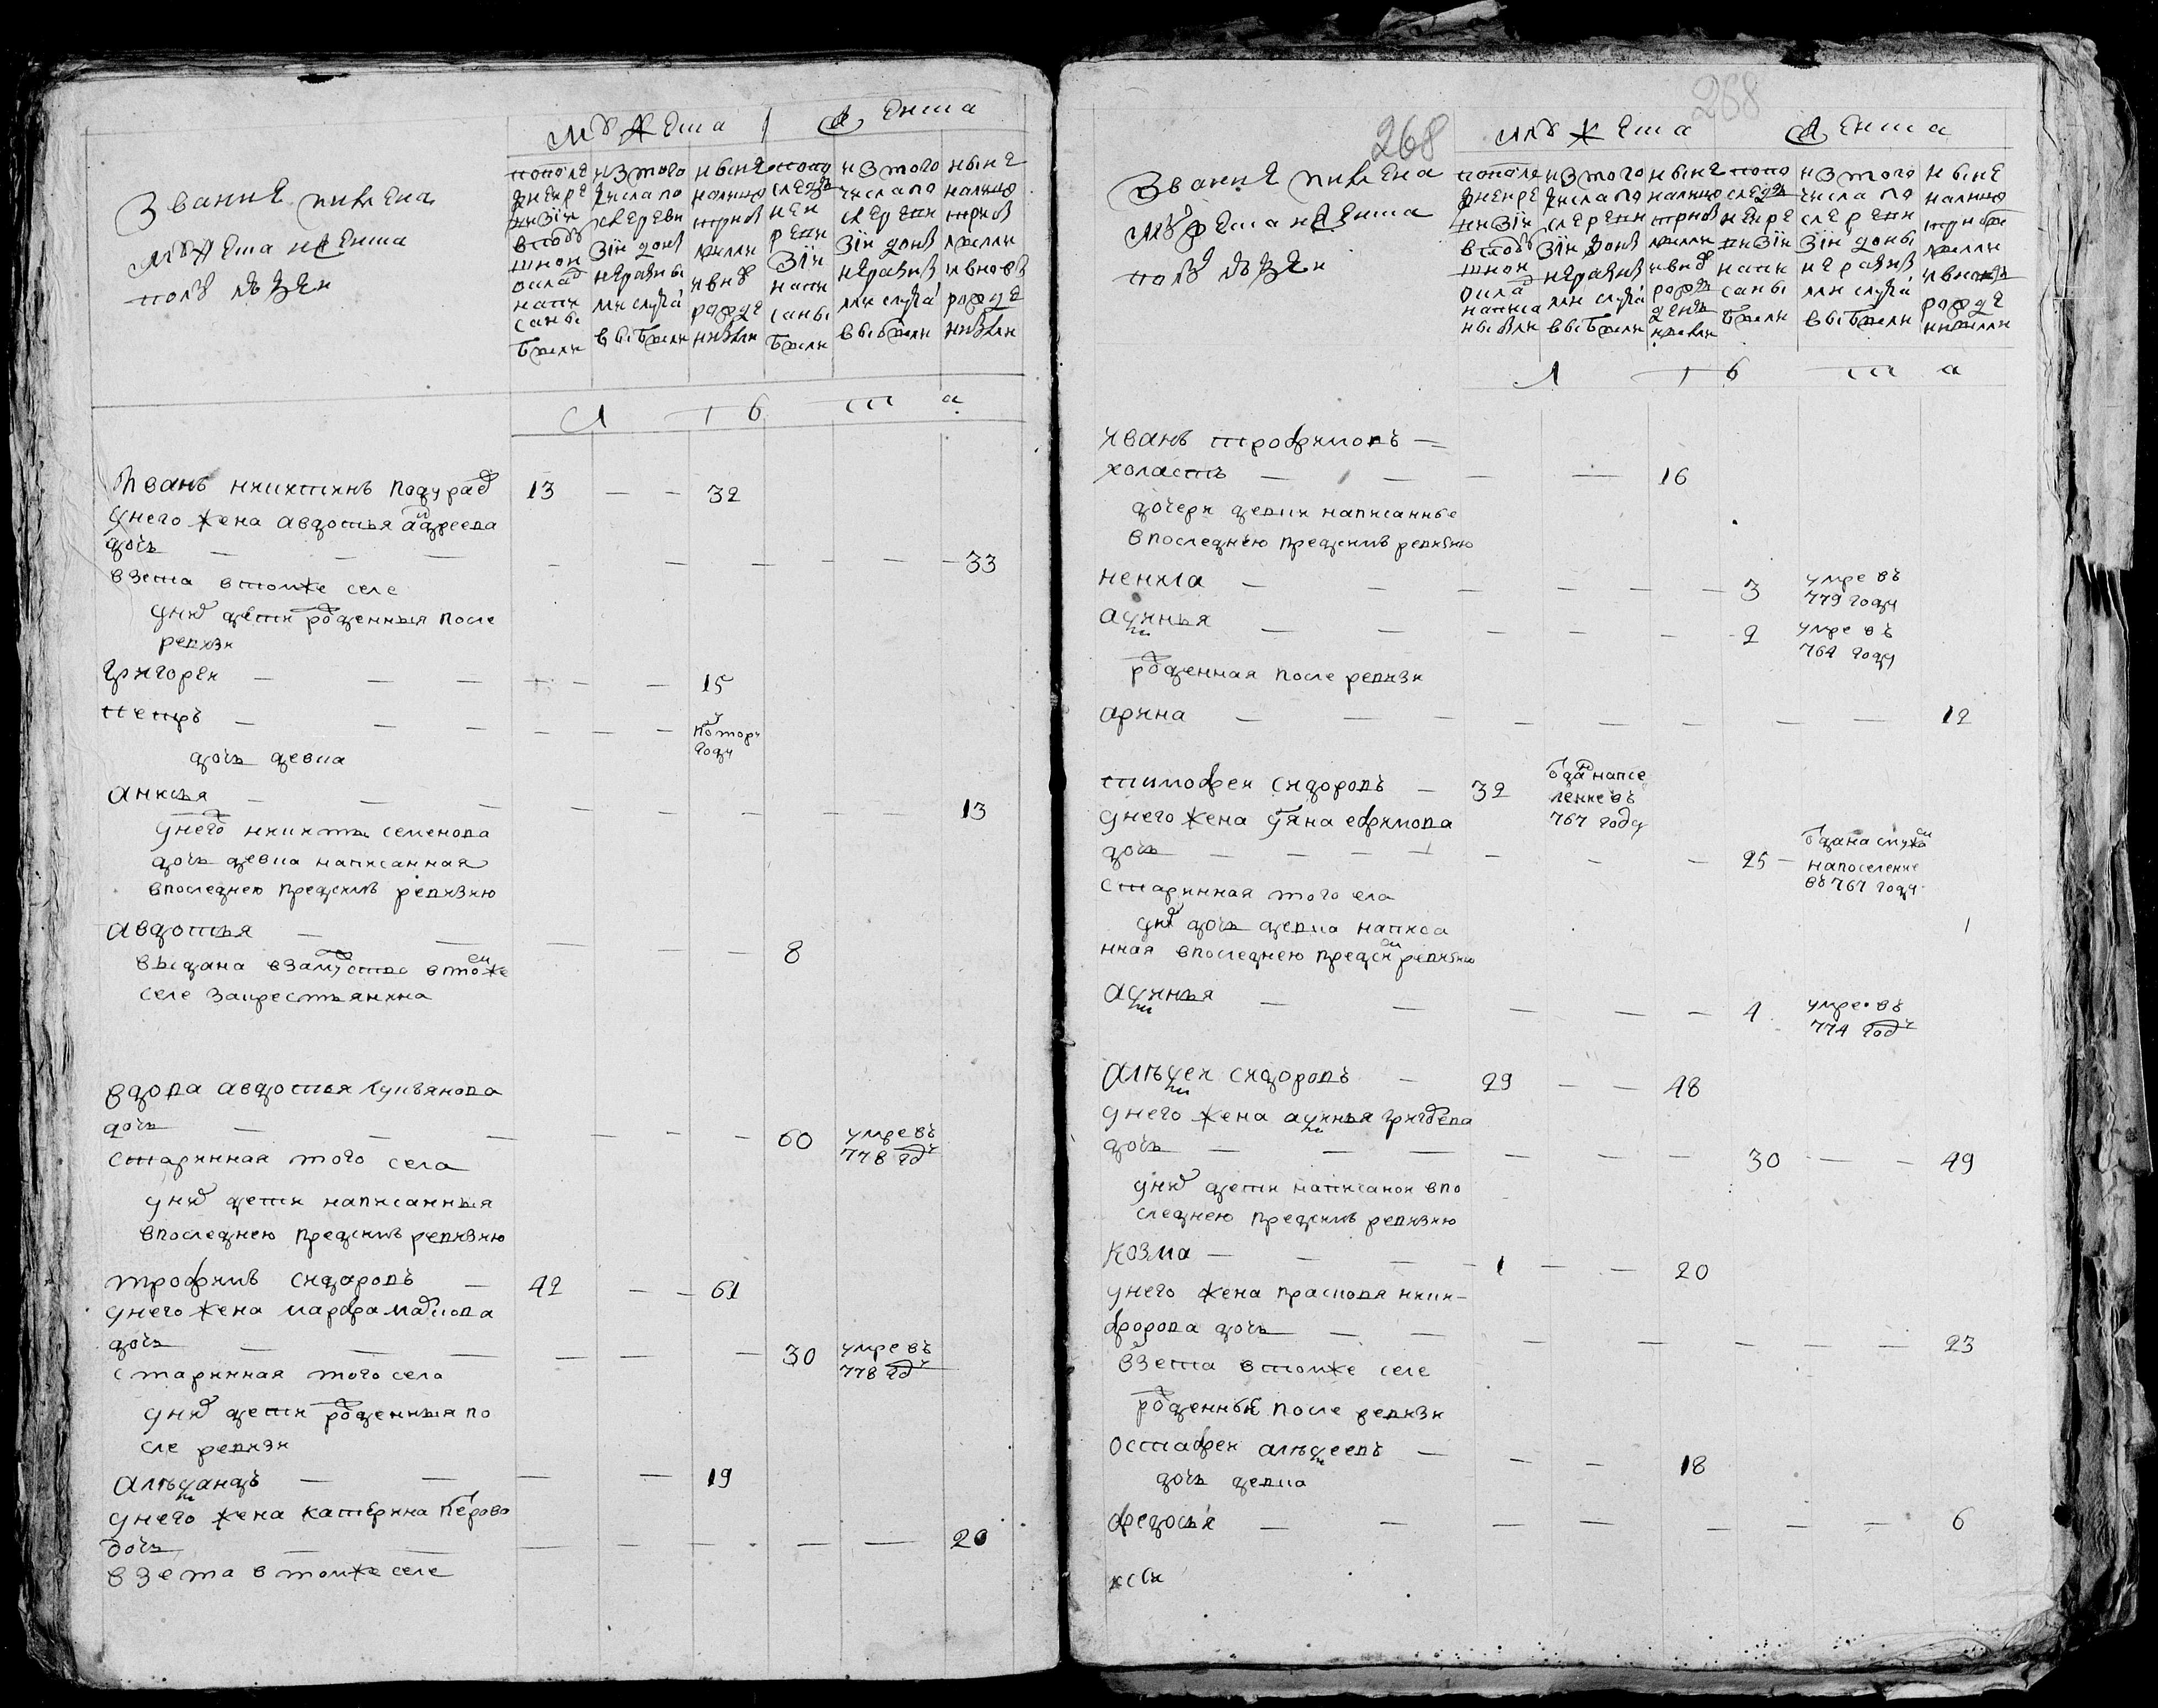 Звание имена
мужеска и женска
полу людей
мужеска женска
по последней ревизии в подушной оклад написаны были
из того числа после ревизии до ныне разными случаи выбыли
ныне на лицо с прибылыми и вновь рожденными
по последней ревизии написаны были
из того числа после ревизии до ныне разными случаи выбыли
ныне на лицо с прибылыми и вновь рожденными
л ѣ т а
Иванъ никитинъ 13 — — 32
у него жена авдотья андреева
дочь — — — — — — — — 33
взета в томже селе
у них дети рожденныя после
ревизи
григореи — — — — — — 15
петръ — — — — — — полтору году
дочь девка
аксинья — — — — — — — — 13
у него никиты семенова
дочь девка написанная
впоследнею предсимъ ревизию
авдотья — — — — — 8
выдана взамуство в томже
селе закрестьянина
вдова авдотья лукьянова
дочь — — — — — — 60 умре въ 778 году
старинная того села
у них дети написанныя
впоследнею предсимъ ревизию
трофимъ сидаровъ — 42 — — 61
у него жена марфа
дочь — — — — — — 30 умре въ 778 году
старинная того села
у них дети рожденныя по
сле ревизи
алѣксандръ — — — — 19
у него жена катерина петрова
дочь — — — — — — — — 20
взета в томже селе
268
268
Звание имена
мужеска и женска
полу людей
мужеска женска
по последней ревизии в подушной оклад написаны были
из того числа после ревизии до ныне разными случаи выбыли
ныне на лицо с прибылыми и вновь рожденными
по последней ревизии написаны были
из того числа после ревизии до ныне разными случаи выбыли
ныне на лицо с прибылыми и вновь рожденными
л ѣ т а
иванъ трофимовъ —
холастъ — — — — — 16
дочери девки написанные
впоследнею предсимъ ревизию
— — — — — — 3 умре въ 779 году
аксинья — — — — — — 2 умре въ 764 году
рожденная после ревизи
арина — — — — — — — — 12
тимофеи сидоровъ — 32 отдан на поселение въ 767 году
у него жена ульяна ефимова
дочь — — — — — — — 25 — отдана с мужем на поселение въ 767 году
старинная того села
у них дочь девка написа
нная впоследнею предсим ревизию
аксинья — — — — — 4 умре въ 774 году
алѣксеи сидоровъ — 29 — — 48
у него жена аксинья григорева
дочь — — — — — — — 30 — — 49
у них дети написанои впо
следнею предсимъ ревизию
козма — — — — 1 — — 20
у него жена прасковя ники-
форова дочь — — — — — — — 23
взета в томже селе
рожденныи после ревизи
остафеи алѣксеевъ — — — 18
дочь девка
федосья — — — — — — — 6